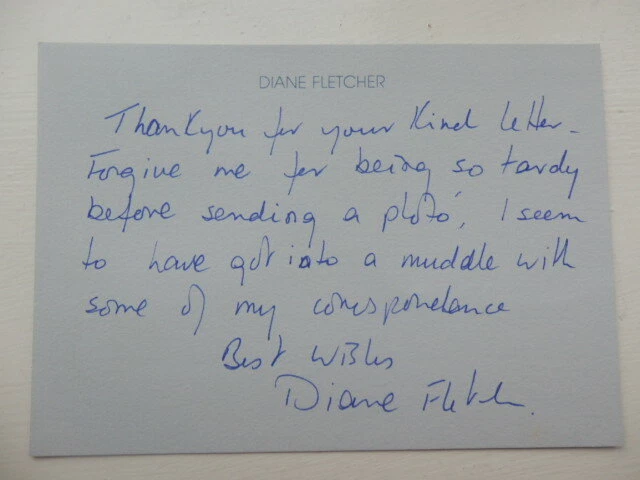 DIANE FLETCHER
Thankyou for your kind letter.
Forgive me for being so tardy
before sending a photo', I seem
to have got into a muddle with
some of my correspondance
Best Wishes
Diane Fletcher.